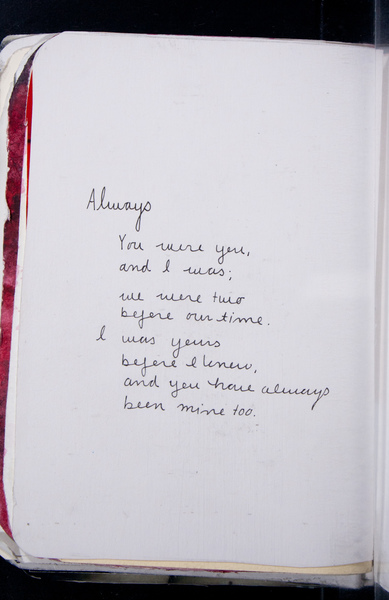 Always
You were you,
and I was;
we were two
before our time.
I was yours
before I knew,
and you have always
been mine too.